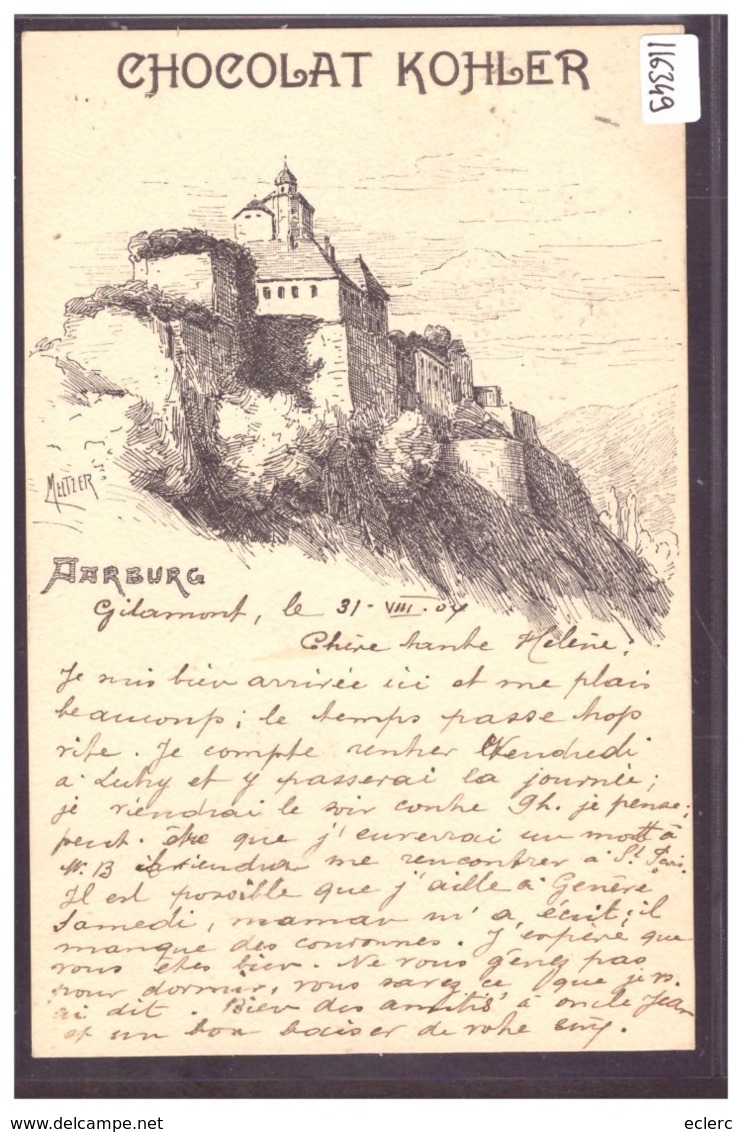 CHOCOLAT KOHLER
116349
MELTZER
AARBURG
Gilamont, le 31-VIII.04
Chère tante Hélène;
Je suis bien arrivée ici et me plais
beaucoup; le temps passe trop
vite. Je compte rentrer Vendredi
à Lutry et y passerai la journée;
je viendrai le soir contre 9h. je pense;
peut-être que j'enverrai un mot à
W. B me rencontrer à St.
Il est possible que j'aille à Genève
Samedi, maman m'a écrit; il
manque des couronnes. J'espère que
vous êtes bien. Ne vous gênez pas
pour dormir, vous savez ce que je vs.
ai dit. Bien des amitiés à oncle Jean
et un bon baiser de votre
eclerc